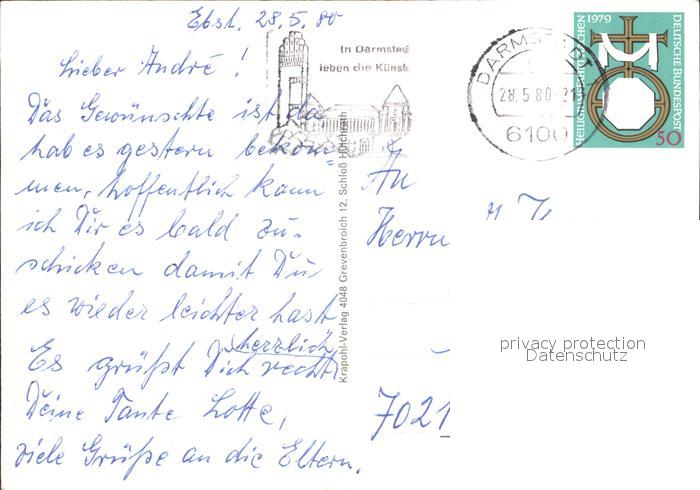 Ebst. 28.5.80
Lieber André!
Das Gewünschte ist da
hab es gestern bekom-
men, hoffentlich kann
ich Dir es bald zu-
schicken damit Du
es wieder leichter hast
Es grüßt Dich recht
herzlich
Deine Tante Lotte,
viele Grüße an die Eltern.
In Darmstad
leben die Künste
Krapohl-Verlag 4048 Grevenbroich 12, Schloß Hülchrath
DARMSTADT
28.5.80-21
6100
1979
HEILIGTUMSFAHRT AACHEN
DEUTSCHE BUNDESPOST
50
An
Herrn
7021
privacy protection
Datenschutz